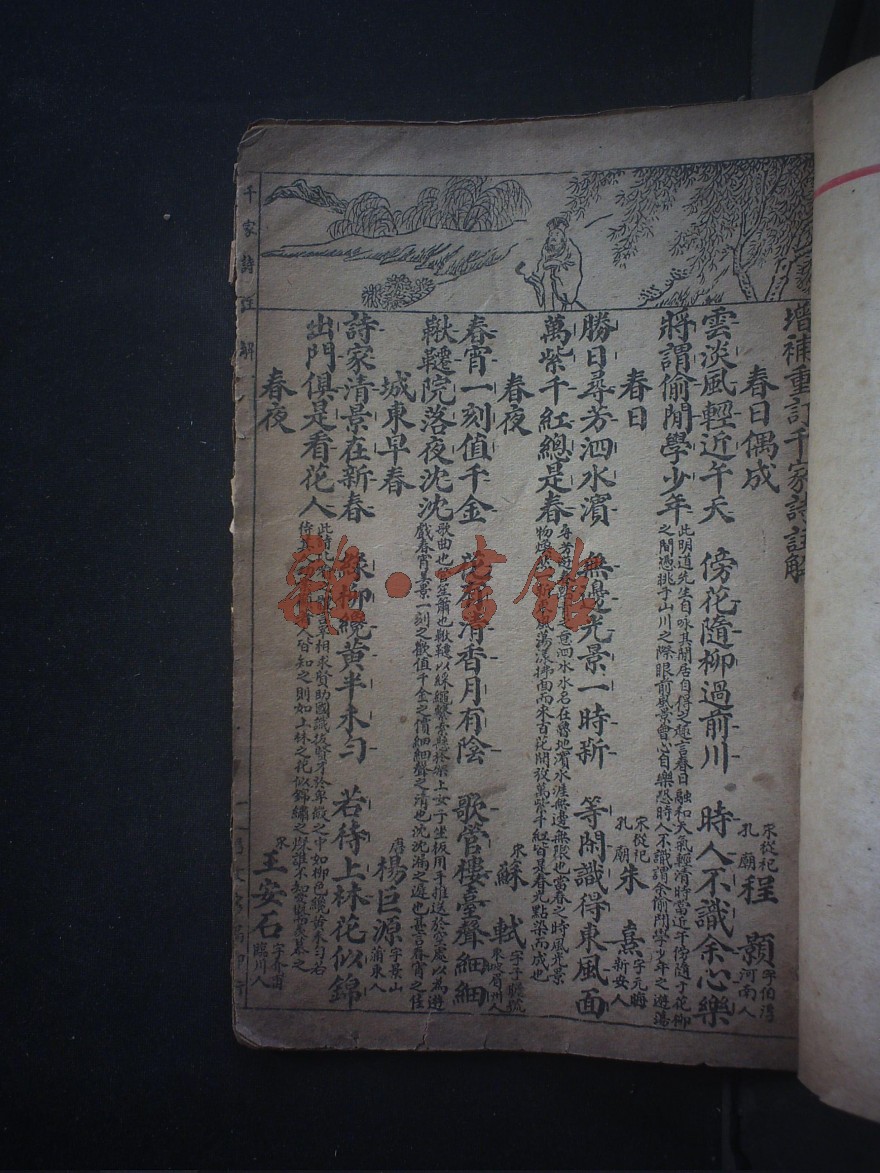 增補重訂千家詩註解
春日偶成
宋從祀孔廟 程顥 字伯淳河南人
雲淡風輕近午天 傍花隨柳過前川 時人不識余心樂
將謂偷閒學少年
此明道先生自咏其閒居自得之趣言春日融和天氣輕清時當近午傍隨于花柳
之間憑挑于山川之際眼前風景會心自樂恐時人不識謂余偷閒學少年之遊蕩
春日
宋從祀孔廟 朱熹 字元晦新安人
勝日尋芳泗水濱 無邊光景一時新 等閒識得東風面
萬紫千紅總是春
尋芳遊春之意泗水水名在魯地濱水涯無邊無限也當春之時風光景
物煥拂面而來百花開放萬紫千紅皆是春光點染而成也
春夜
宋 蘇軾 字子瞻號東坡眉州人
春宵一刻值千金 花有清香月有陰 歌管樓臺聲細細
鞦韆院落夜沈沈
歌曲也管笙簫也鞦韆以綵繩繫架上女子坐板用手推送於空處以為遊
戲春宵美景一刻之歡值千金之價細細聲之清也沈沈滿之遽也甚言春宵之佳
城東早春
唐 楊巨源 字景山蒲東人
詩家清景在新春 綠柳纔黃半未勻 若待上林花似錦
出門俱是看花人
相求賢助國識拔賢才於卑微之中如柳色纔黃未勻若
待人皆知之則如上林之花似錦繡之燦誰不知愛慕之
春夜
宋 王安石 字介甫臨川人
千家詩註解
雜·書館